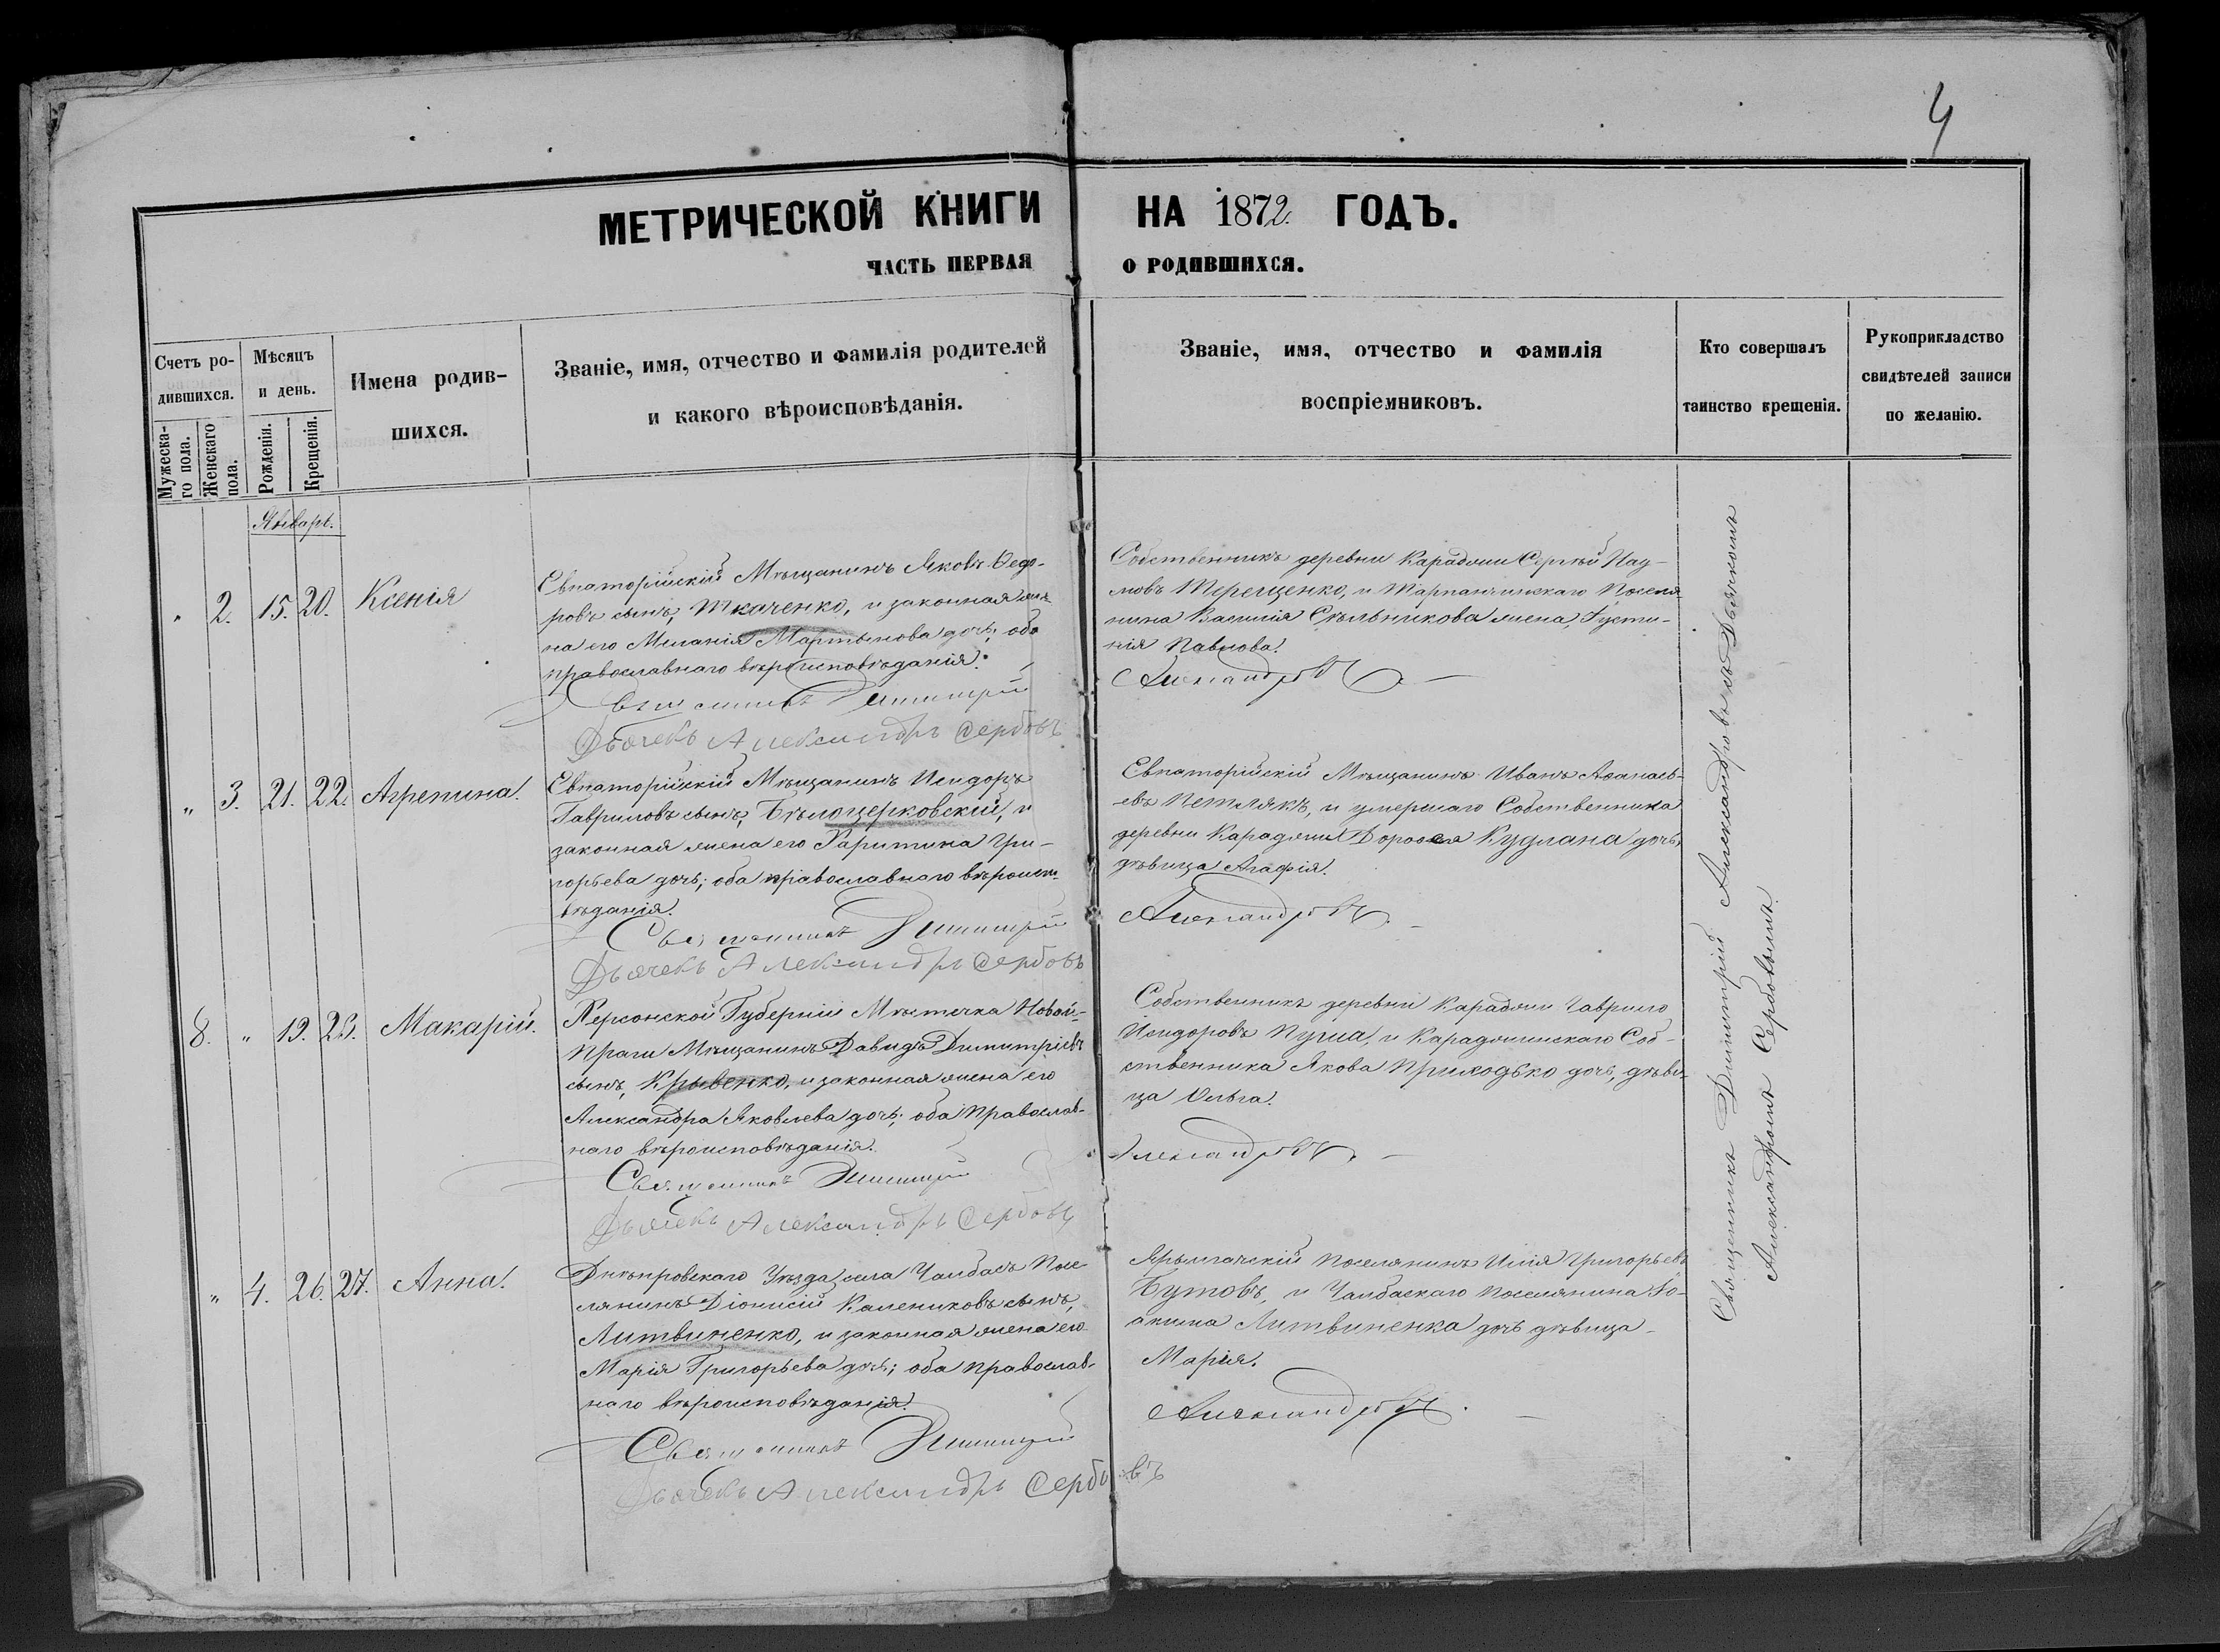 4
МЕТРИЧЕСКОЙ КНИГИ НА 1872. ГОДЪ.
ЧАСТЬ ПЕРВАЯ О РОДИВШИХСЯ.
Счетъ ро-
дившихся.
Мужеска-
го пола.
Женскаго
пола.
Мѣсяцъ
и день.
Рожденія.
Крещенія.
Имена родив-
шихся.
Званіе, имя, отчество и фамилія родителей
и какого вѣроисповѣданія.
Званіе, имя, отчество и фамилія
воспріемниковъ.
Кто совершалъ
таинство крещенія.
Рукоприкладство
свидѣтелей записи
по желанію.
Январь.
" 2. 15. 20. Ксенія
Евпаторійскій Мѣщанинъ Яковъ Ѳедо-
ровъ сынъ, Ткаченко, и законная же-
на его Меланія Мартынова дочь, оба
православнаго вѣроисповѣданія.
Священникъ Димитрій
Дьячекъ Александръ Сербовъ
Собственникъ деревни Караджи Сергѣй Нау-
мовъ Терещенко, и Тарпанчинскаго Поселя-
нина Василія Стѣльникова жена, Густи-
нія Павлова.
Александровъ
" 3. 21. 22. Агрепина.
Евпаторійскій Мѣщанинъ Исидоръ
Гавриловъ сынъ, Бѣлоцерковскій, и
законная жена его Харитина Гри-
горьева дочь; оба православнаго вѣроиспо-
вѣданія.
Священникъ Димитрій
Дьячекъ Александръ Сербовъ
Евпаторійскій Мѣщанинъ Иванъ Аѳанась-
евъ Петлякъ, и умершаго Собственника
деревни Караджи Дороѳея Кудлана дочь,
дѣвица Агафія.
Александровъ
8. " 19. 23. Макарій.
Херсонской Губерніи Мѣстечка Новой-
Праги Мѣщанинъ Давидъ Димитріевъ
сынъ, Кривенко, и законная жена его
Александра Яковлева дочь; оба Православ-
наго вѣроисповѣданія.
Священникъ Димитрій
Дьячекъ Александръ Сербовъ
Собственникъ деревни Караджи Гаврило
Исидоровъ Пуша, и Караджинскаго Соб-
ственника Якова Приходько дочь, дѣви-
ца Ольга.
Александровъ
" 4. 26. 27. Анна.
Днѣпровскаго Уѣзда села Чалбасъ Посе-
лянинъ Діонисій Калениковъ сынъ,
Литвиненко, и законная жена его
Марія Григорьева дочь; оба православ-
наго вѣроисповѣданія.
Священникъ Димитрій
Дьячекъ Александръ Сербовъ
Ярылгачскій поселянинъ Илія Григорьевъ
Бутовъ, и Чалбаскаго поселянина Іо-
акима Литвиненка дочь дѣвица
Марія.
Александровъ
Священникъ Димитрій Александровъ съ Дьячкомъ
Александромъ Сербовымъ